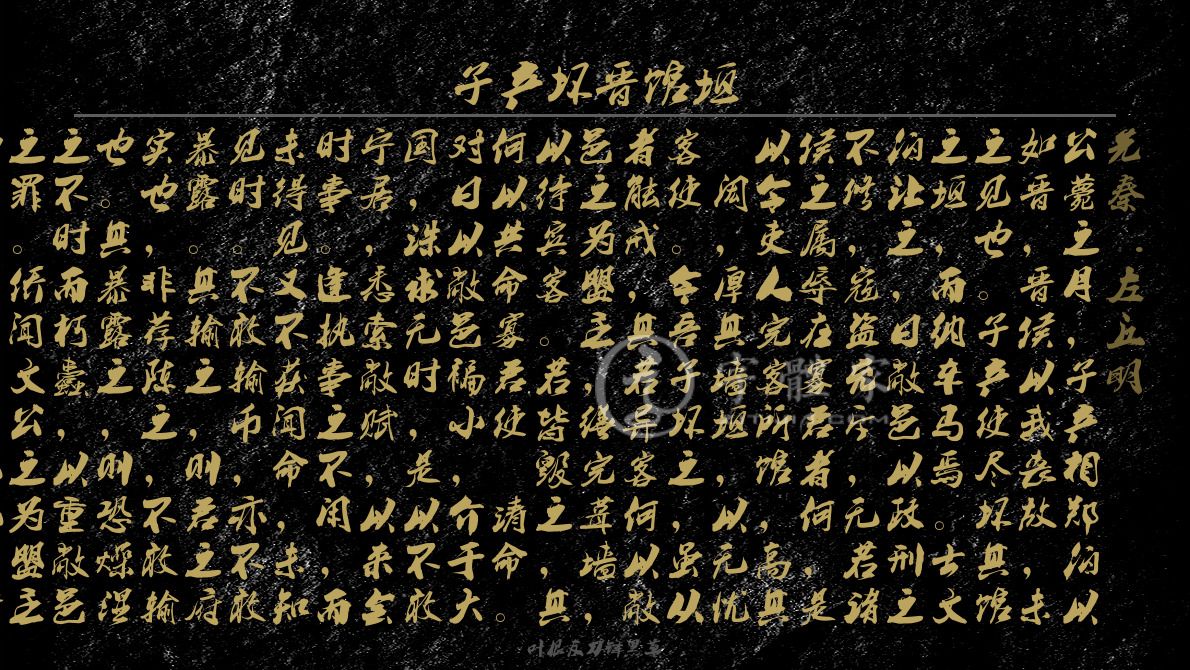 子产坏晋馆垣
先秦·左丘明
公薨之月，子产相郑伯以
如晋，晋侯以我丧故，未
之见也。子产使尽坏其馆
之垣，而纳车马焉。士文
伯让之，曰敝邑以政刑之
不修，寇盗充斥，无若诸
侯之属辱在寡君者何，是
以令吏人完客所馆，高其
闳，厚其墙垣，以无忧
客使。令吾子坏之，虽以
者能戒，其若异客何，以敝
邑之为盟主，缮完葺墙，
以待宾客。若皆毁之，其
何以共命，寡君使请命。
对曰，以敝邑褊小，介于大
国，诛求无时，是以不敢
宁居，悉索敝赋，以来会
时事。逢执事之不间，而
未得见。又不获闻命，未知
见时。不敢输币，亦不敢
暴露。其输之，则君之府
实也，非荐陈之，不敢输
也。其暴露之，则恐燥湿
之不时而朽蠹，以重敝邑
之罪。侨闻文公之为盟主